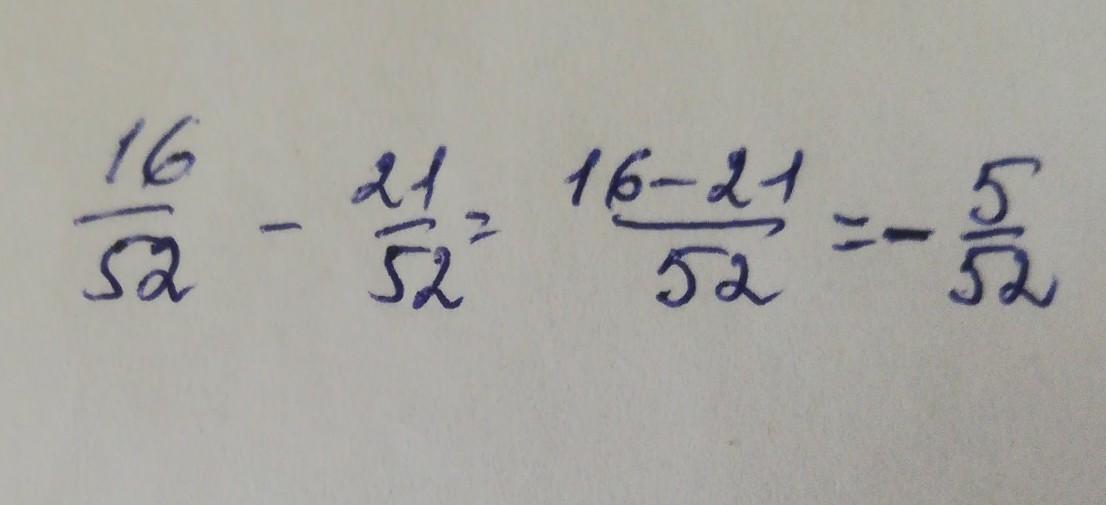 16/52 - 21/52 = 16-21/52 = - 5/52